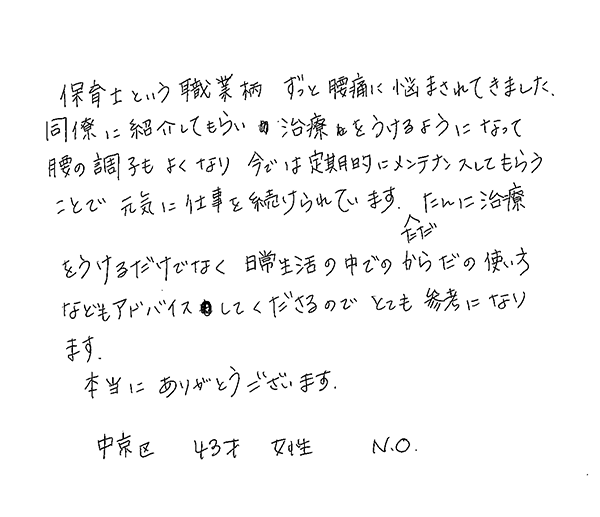 保育士という職業柄 ずっと腰痛に悩まされてきました.
同僚に紹介してもらい治療をうけるようになって
腰の調子もよくなり 今では定期的にメンテナンスしてもらう
ことで 元気に仕事を続けられています. たんに治療
ただ
をうけるだけでなく 日常生活の中でのからだの使い方
などもアドバイスしてくださるので とても参考になり
ます.
本当に ありがとうございます.
中京区 43才 女性 N.O.